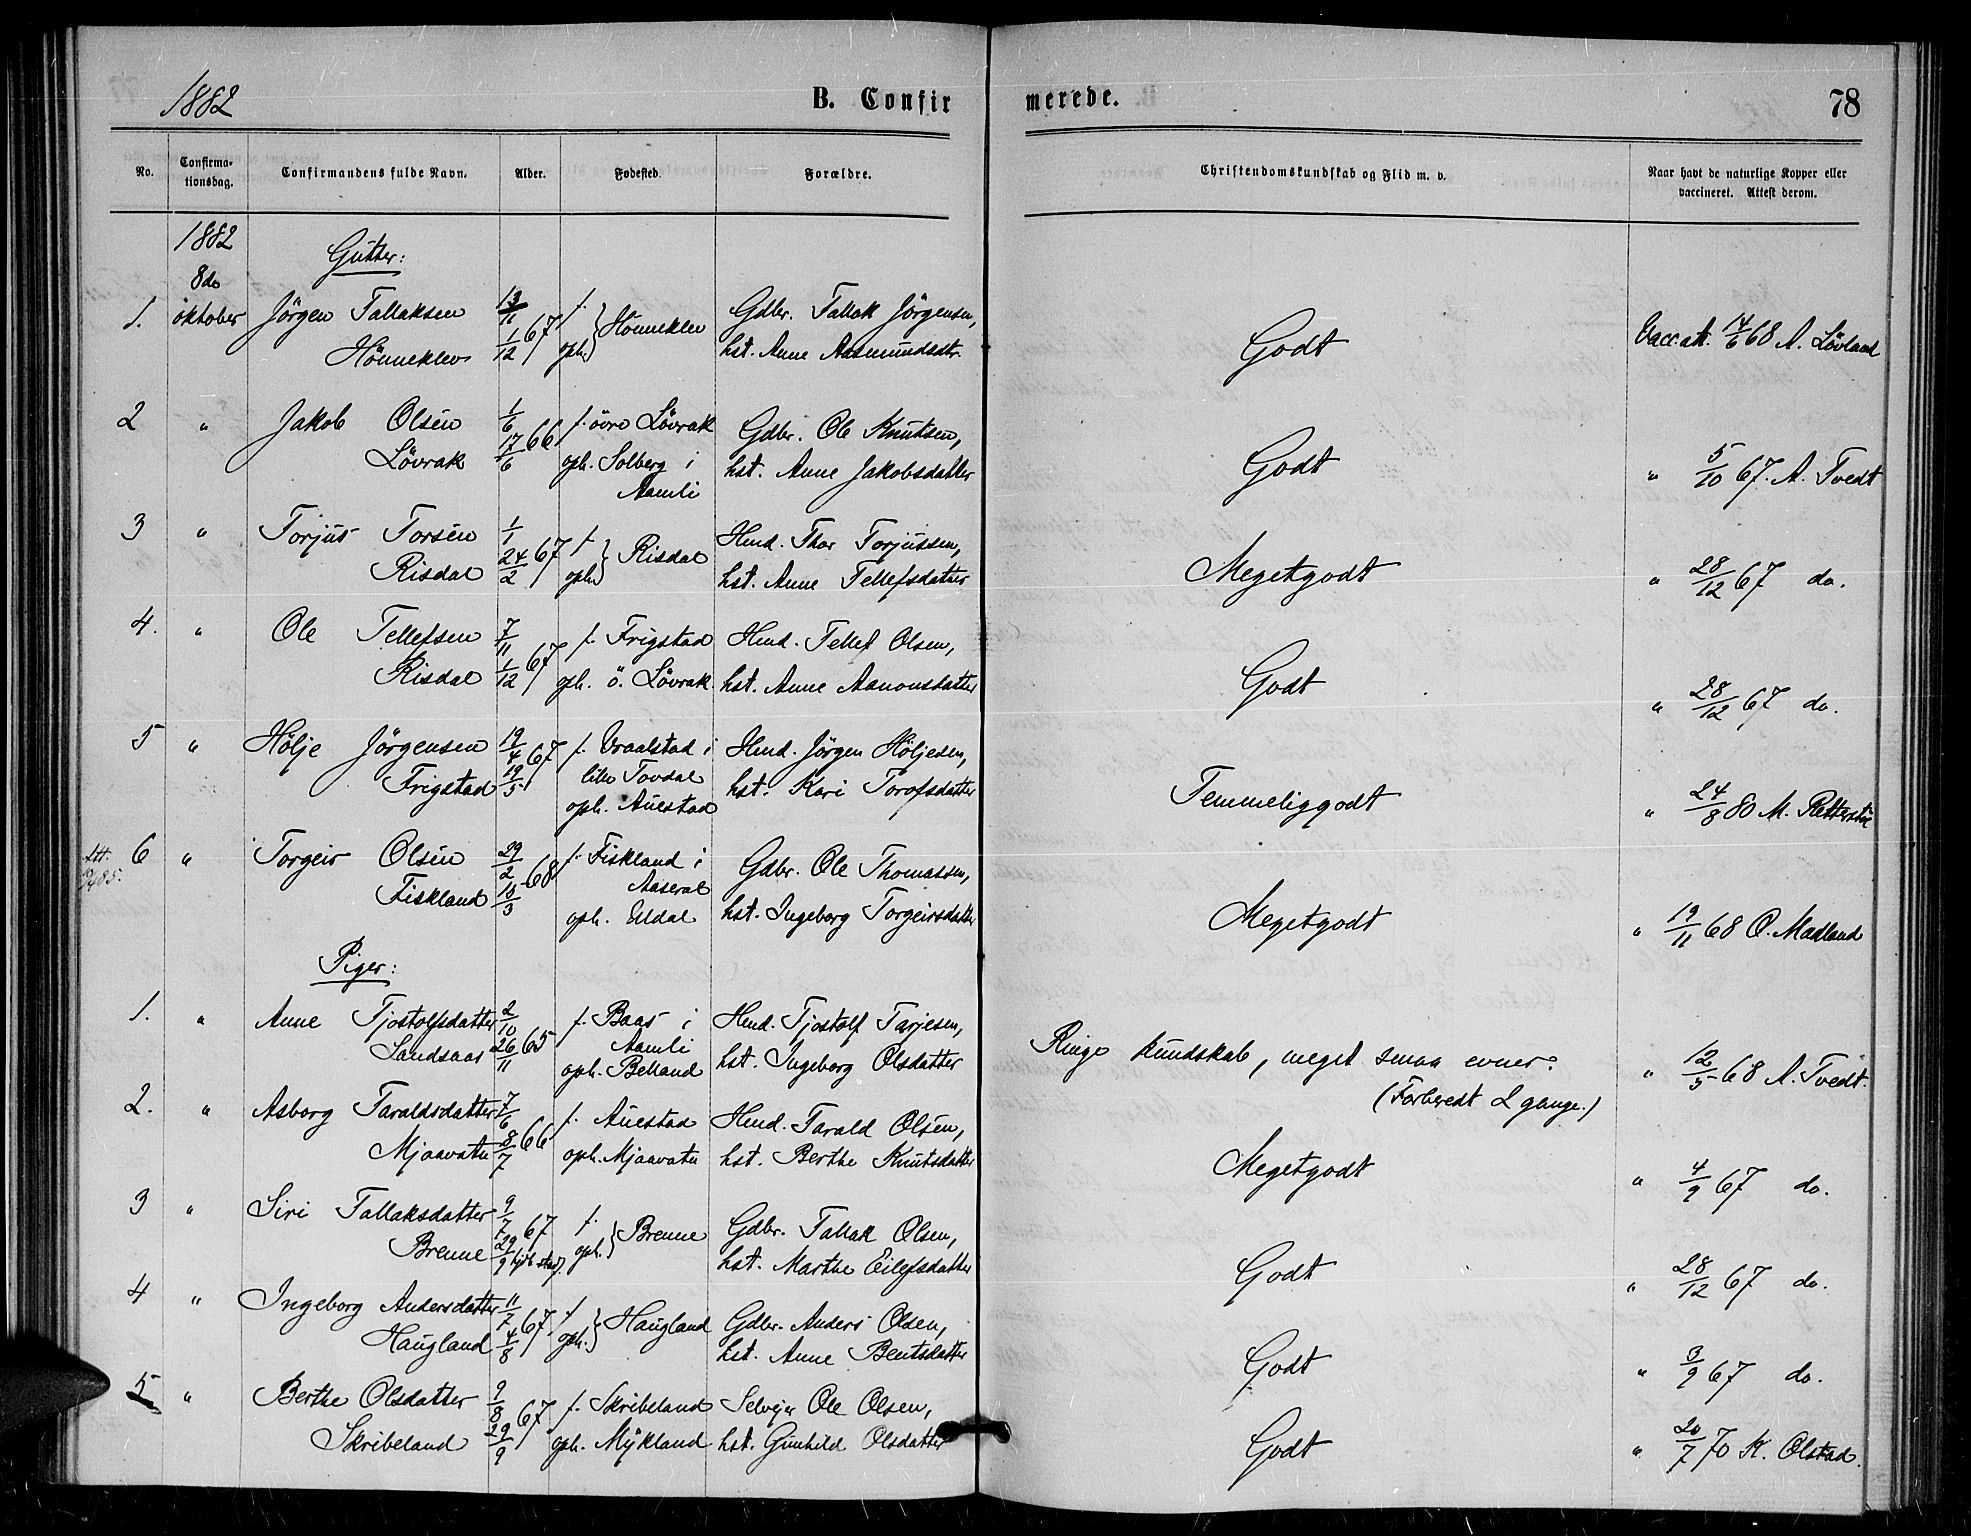 1882
B. Confirmerede.
78
No.
Confirmationsdag.
Confirmandens fulde Navn.
Alder.
Fødested.
Forældre.
Christendomskundskab og Flid m. v.
Naar havt de naturlige Kopper eller vaccineret. Attest derom.
1882
8de
oktober
Gutter:
1. Jörgen Tallaksen 13/11 f. Gdbr. Tallak Jörgensen,
Hönneklev 1/12 67 oph. Hönneklev hst. Anne Aasmundsdtr. Godt Vacc. att. 14/6 68 A. Lövland
2 " Jakob Olsen 1/6 f. övre Lövrak Gdbr. Ole Knutsen,
Lövrak 17/6 66 oph. Solberg i Aamli hst. Anne Jakobsdatter Godt " 5/10 67. A. Tvedt
3 " Torjus Torsen 1/1 f. Hmd. Thor Torjussen,
Risdal 24/2 67 oph. Risdal hst. Anne Tellefsdatter Megetgodt " 28/12 67 do.
4. " Ole Tellefsen 7/11 f. Frigstad Hmd. Tellef Olsen,
Risdal 1/12 67 oph. ö. Lövrak hst. Anne Aanonsdatter Godt " 28/12 67 do.
5 " Hölje Jörgensen 19/4 67 f. Vraalstad i Hmd. Jörgen Höljesen,
Frigstad 19/5 lille Tovdal oph. Auestad hst. Kari Torofsdatter Temmeliggodt " 24/8 80 M. Retterstöl
6 " Torgeir Olsen 29/2 f. Fiskland i Gdbr. Ole Thomassen,
Fiskland 15/3 68 Aaseral oph. Eldal hst. Ingeborg Torgeirsdatter Megetgodt " 19/11 68 O. Madland
Piger:
1. " Anne Tjostolfsdatter 2/10 f. Baas i Hmd. Tjostolf Tarjesen,
Sandsaas 26/11 65 Aamli oph. Belland hst. Ingeborg Olsdatter Ringe kundskab, meget smaa evner. " 12/5 68 A. Tvedt.
(Forberedt 2 gange.)
2. " Asborg Taraldsdatter 7/6 f. Auestad Hmd. Tarald Olsen,
Mjaavatn 8/7 66 oph. Mjaavatn hst. Berthe Knutsdatter Megetgodt " 4/9 67 do.
3 " Siri Tallaksdatter 9/7 67 f. Gdbr. Tallak Olsen,
Brenne 29/9 oph. Brenne hst. Marthe Eilefsdatter Godt " 28/12 67 do.
4 " Ingeborg Andersdatter 11/7 f. Gdbr. Anders Olsen,
Haugland 4/8 67 oph. Haugland hst. Anne Bentsdatter Godt " 3/9 67 do.
5 " Berthe Olsdatter 9/8 f. Skribeland Selvejer Ole Olsen,
Skribeland 29/9 67 oph. Mykland hst. Gunhild Olsdatter Godt " 20/7 70 K. Olstad.